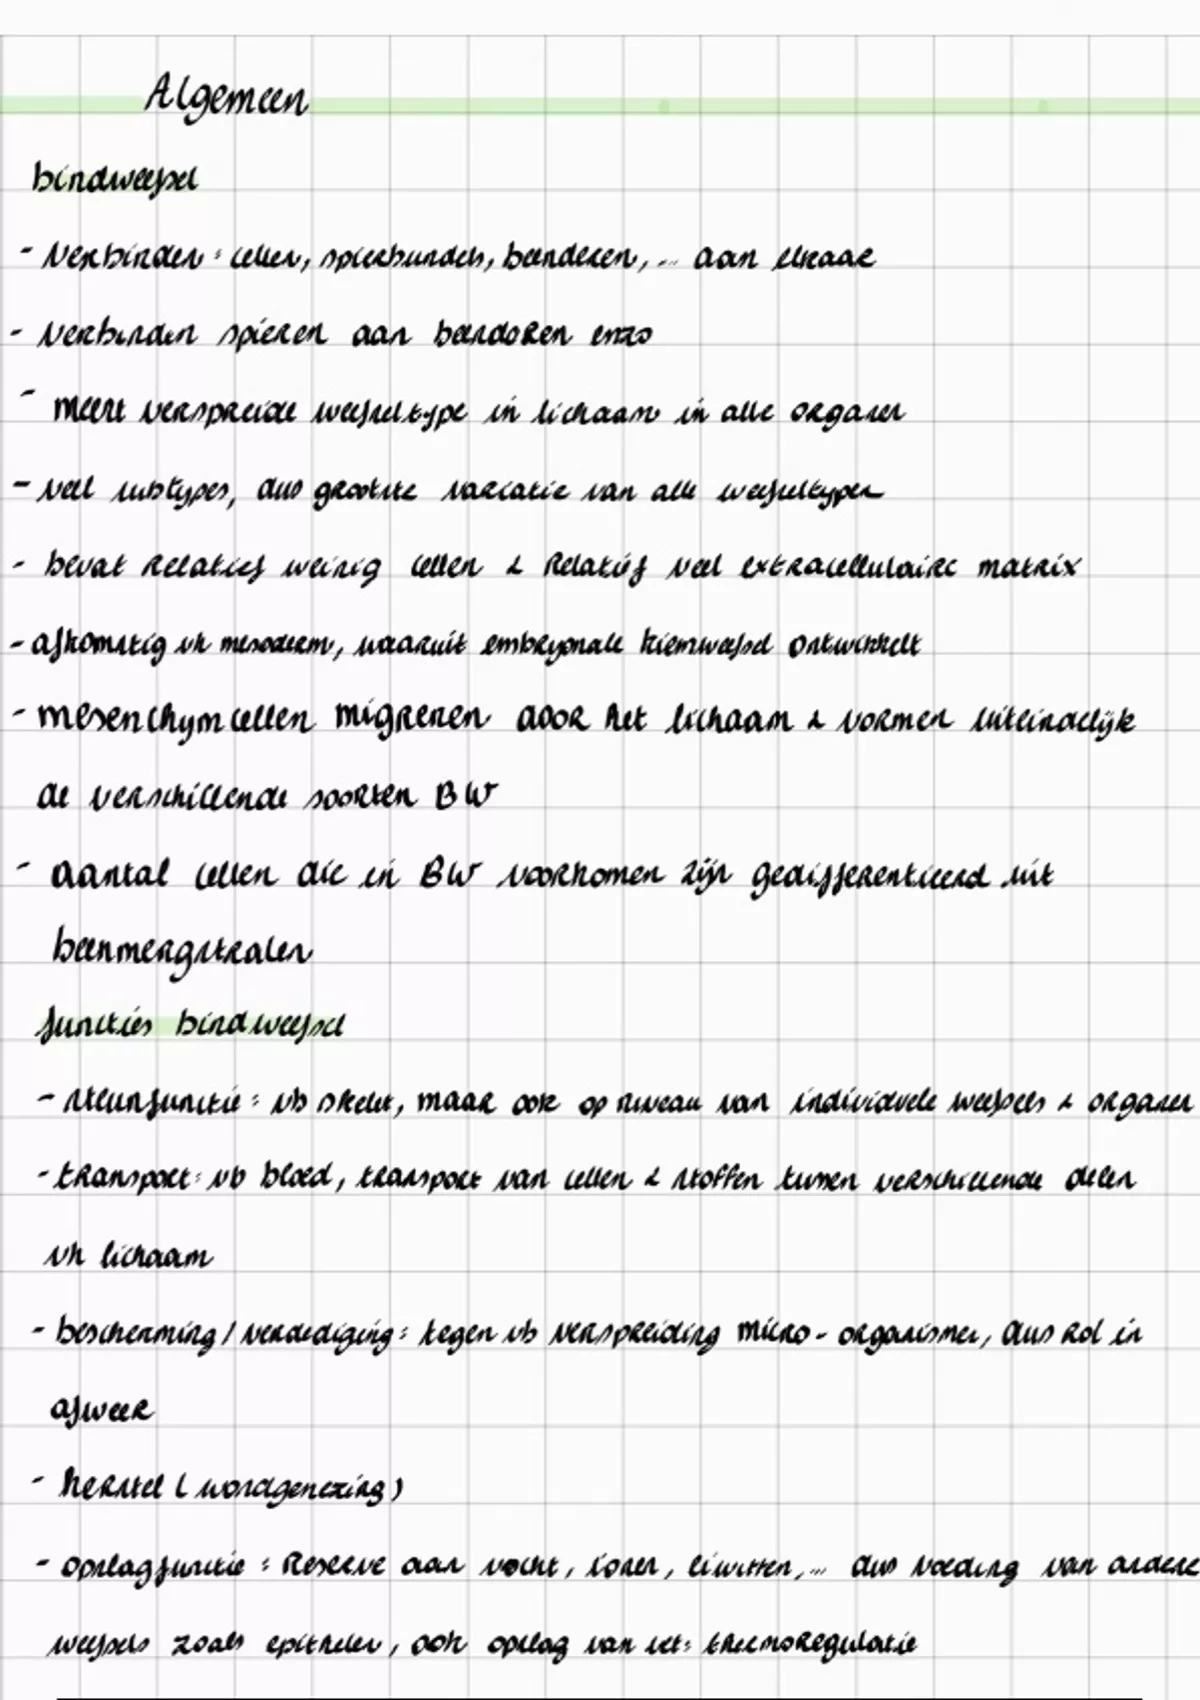 Algemeen
bindweefsel
- Verbinden: cellen, spierbundels, beenderen, ... aan elkaar
- Verbinden spieren aan beenderen enzo
- meest verspreide weefseltype in lichaam in alle organen
- veel subtypes, dus grootste variatie van alle weefseltypen
- bevat relatief weinig cellen & relatief veel extracellulaire matrix
- afkomstig vh mesoderm, waaruit embryonale kiemweefsel ontwikkelt
- mesenchymcellen migreren door het lichaam & vormen uiteindelijk
de verschillende soorten BW
- aantal cellen die in BW voorkomen zijn gedifferentieerd uit
beenmergstralen
functies bindweefsel
- steunfunctie: vb skelet, maar ook op niveau van individuele weefsels & organen
- transport: vb bloed, transport van cellen & stoffen tussen verschillende delen
vh lichaam
- bescherming / verdediging: tegen vb verspreiding micro-organismen, dus rol in
afweer
- herstel (wondgenezing)
- opslagfunctie: Reserve aan vocht, ionen, eiwitten, ... dus voeding van andere
weefsels zoals epithelen, ook opslag van vet: thermoregulatie